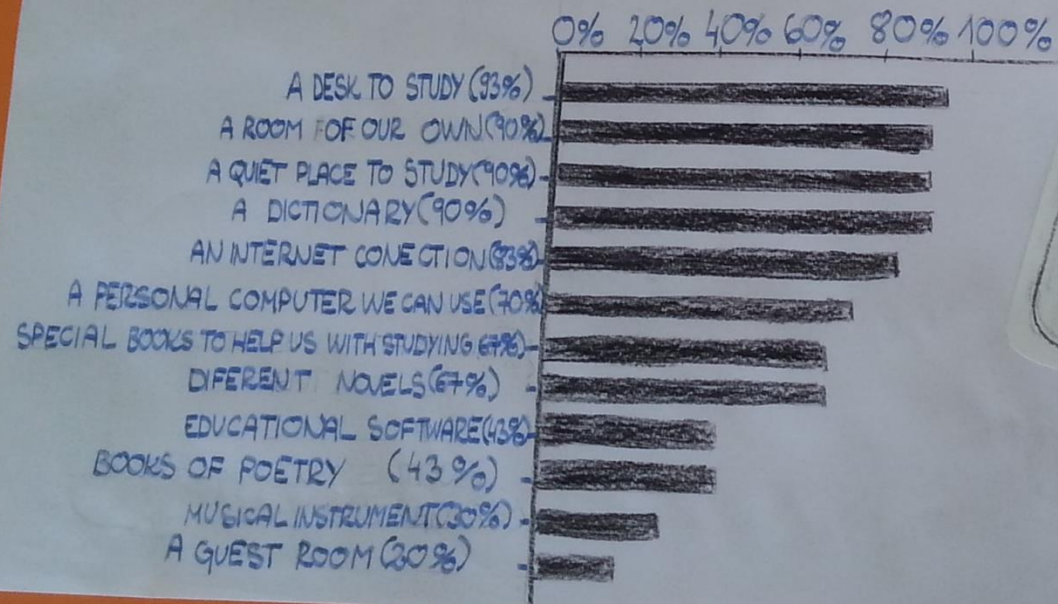 0% 20% 40% 60% 80% 100%
A DESK TO STUDY (93%)
A ROOM OF OUR OWN (90%)
A QUIET PLACE TO STUDY (90%)
A DICTIONARY (90%)
AN INTERNET CONECTION (83%)
A PERSONAL COMPUTER WE CAN USE (70%)
SPECIAL BOOKS TO HELP US WITH STUDYING (67%)
DIFERENT NOVELS (67%)
EDUCATIONAL SOFTWARE (43%)
BOOKS OF POETRY (43%)
MUSICAL INSTRUMENT (30%)
A GUEST ROOM (20%)